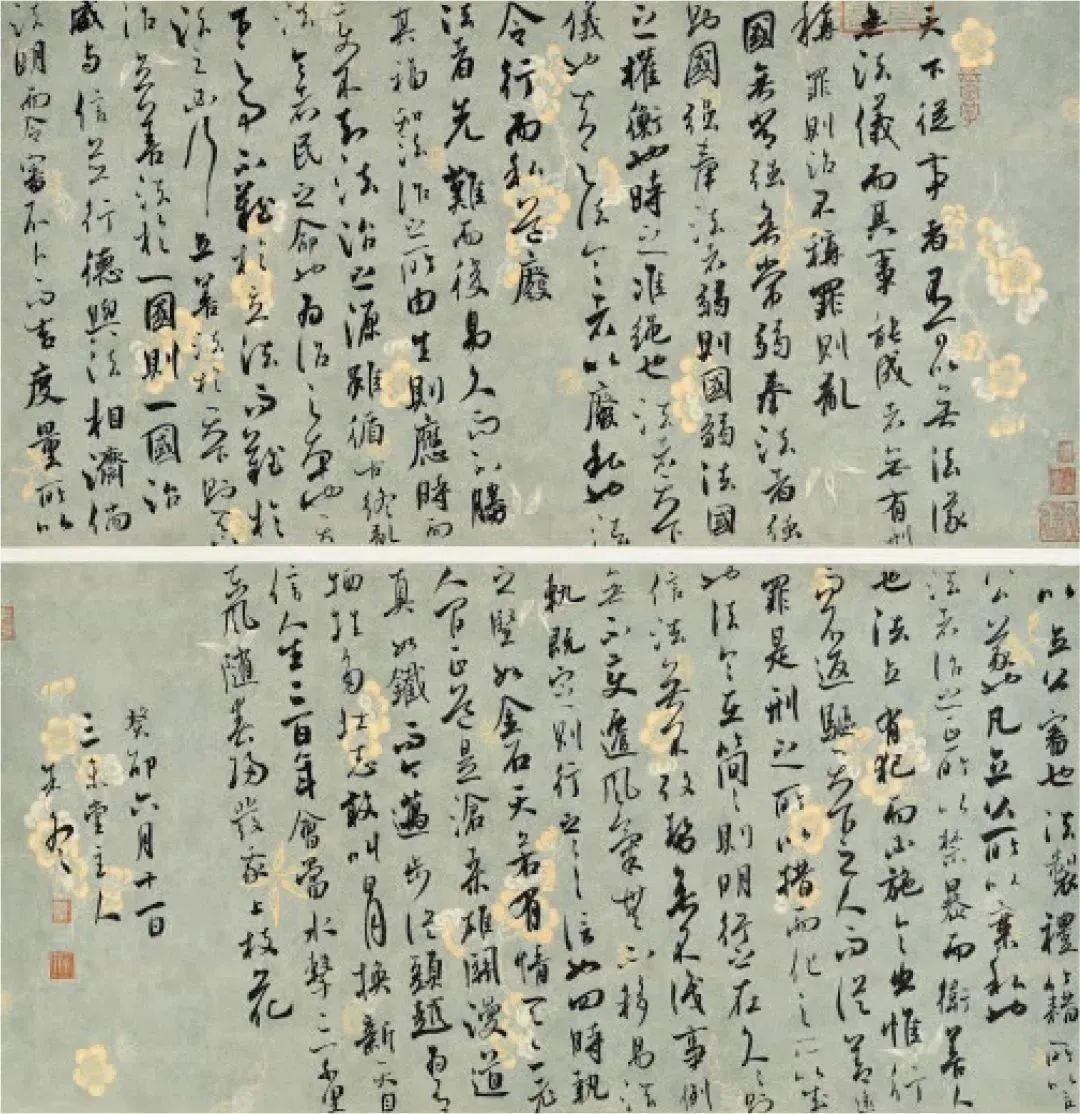 天下從事者不可以無法儀
無法儀而其事能成者無有刑
稱罪則治不稱罪則亂
國無常強無常弱奉法者強
則國強奉法者弱則國弱法國
之權衡也時之准繩也法者天下
儀也 法令者以廢私也法
令行而私道廢
法者先難而後易久而不勝
其福和法治之所由生則應時而
變不知法治之源雖循古終亂
法令者民之命也為治之本也天
下之事不難於立法而難於
法之必行立善法於天下則天下
治立善法於一國則一國治
威与信並行德與法相濟
法明而令審不卜而吉度量所以
以立公審也法製禮籍所以
公義也凡立公所以棄私也
法者治之正所以禁暴而衛善人
也法立有犯而必施令出惟行
而不返驅天下之人而從善遠
罪是刑之所以措而化之
也法令在簡簡則明行之在久久則
信法
無不變遷風氣無不移易法
執既定則行之之信如四時執
之堅如金石天若有情天亦老
人間正道是滄桑雄關漫道
真如鐵而今邁步從頭越為有
犧牲多壯志敢叫日月換新天自
信人生二百年會當水擊三千里
東風隨春歸發我上枝花
癸卯六月十一日
三